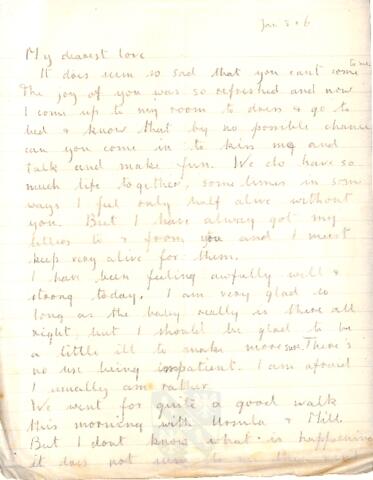 Jan 5 + 6
My dearest love
It does seem so sad that you cant come to me.
The joy of you was so refreshed and now
I come up to my room to dress & go to
bed & know that by no possible chance
can you come in to kiss me and
talk and make fun. We do have so
much life together, sometimes in some
ways I feel only half alive without
you. But I have always got my
letters to & from you and I must
keep very alive for them.
I have been feeling awfully well &
strong today. I am very glad so
long as the baby really is there all
right, but I should be glad to be
a little ill to make more sure. There's
no use being impatient. I am afraid
I usually am rather.
We went for quite a good walk
this morning with Ursula & Mill.
But I dont know what is happening
it does not seem to